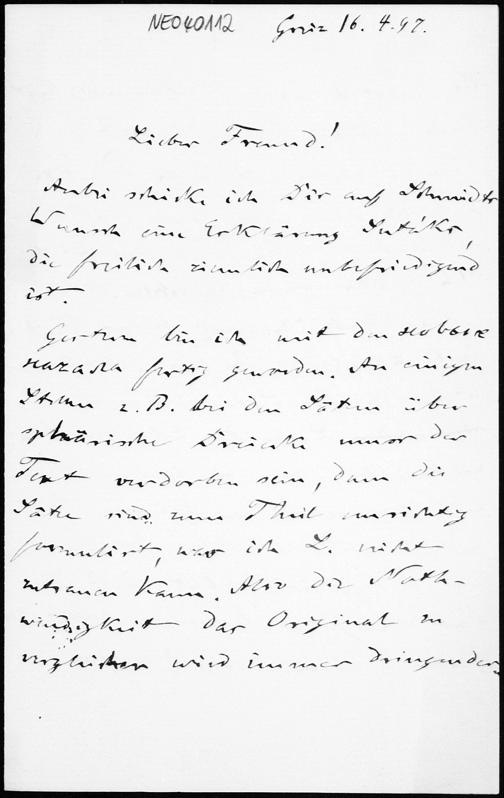 NE040112
Greiz 16. 4. 97.
Lieber Freund!
Anbei schicke ich Dir auf Schmidts
Wunsch eine Erklärung Sintákos,
die freilich ziemlich unbefriedigend
ist.
Gestern bin ich mit den новые
начала fertig geworden. An einigen
Stellen z. B. bei den Sätzen über
sphärische Dreiecke muss der
Text verdorben sein, denn die
Sätze sind zum Theil unrichtig
formulirt, was ich L. nicht
zutrauen kann. Also die Noth-
wendigkeit das Original zu
vergleichen wird immer dringender.